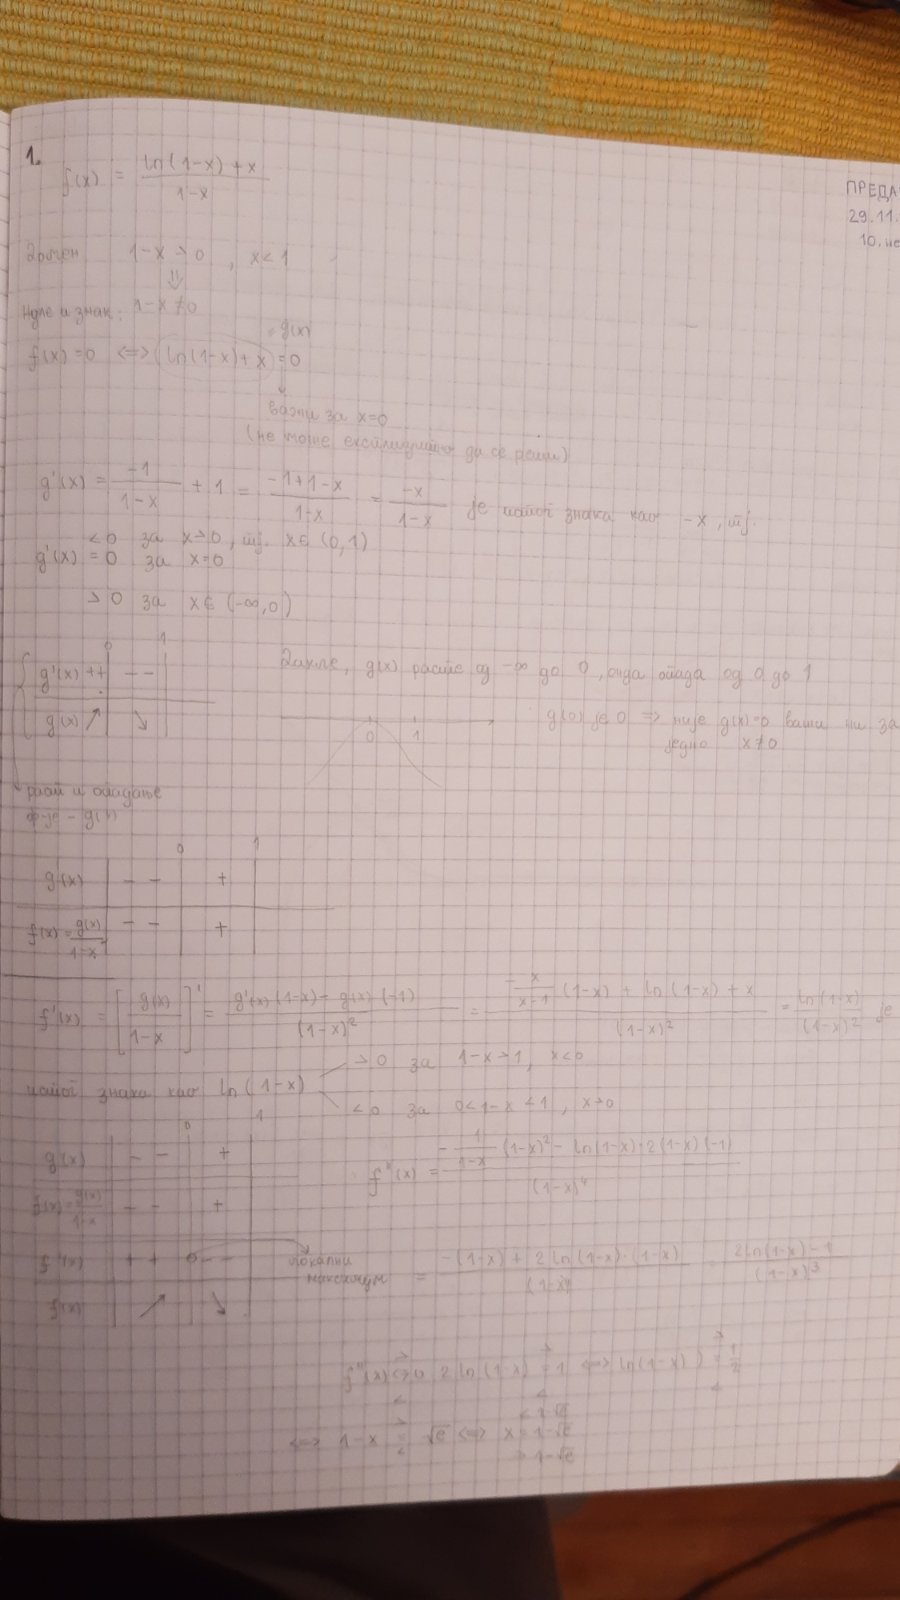 1.
f(x) = \frac{ln(1-x)+x}{1-x}
ПРЕДА
29.11.
10. не
Домен 1-x > 0 , x < 1
⇓
1-x ≠ 0
Нуле и знак:
= g(x)
f(x) = 0 <=> ln(1-x)+x = 0
важи за x=0
(не може експлицитно да се реши)
g'(x) = \frac{-1}{1-x} + 1 = \frac{-1+1-x}{1-x} = \frac{-x}{1-x} је истог знака као -x, тј.
< 0 за x>0, тј. x ∈ (0,1)
g'(x) = 0 за x=0
> 0 за x ∈ (-∞,0)
0 1
g'(x) ++ | - -
g(x) ↗ | ↘
Дакле, g(x) расте од -∞ до 0, онда опада од 0 до 1
0 1
g(0) је 0 => није g(x)=0 важи ни за
једно x≠0
раст и опадање
ф-је - g(x)
0 1
g(x) | - - | +
f(x) = \frac{g(x)}{1-x} | - - | +
f'(x) = [\frac{g(x)}{1-x}]' = \frac{g'(x)(1-x) - g(x)(-1)}{(1-x)^2} = \frac{-\frac{x}{x-1}(1-x) + ln(1-x) + x}{(1-x)^2} = \frac{ln(1-x)}{(1-x)^2} је
истог знака као ln(1-x)
> 0 за 1-x > 1, x<0
< 0 за 0<1-x<1, x>0
0 1
g(x) | - - | +
f(x) = \frac{g(x)}{1-x} | - - | +
f'(x) | + + 0 - - локални максимум
f(x) | ↗ | ↘
f''(x) = \frac{-\frac{1}{1-x}(1-x)^2 - ln(1-x)·2(1-x)(-1)}{(1-x)^4}
= \frac{-(1-x) + 2ln(1-x)·(1-x)}{(1-x)^4} = \frac{2ln(1-x)-1}{(1-x)^3}
> > >
f''(x) = 0 2ln(1-x) = 1 <=> ln(1-x) = \frac{1}{2}
< < <
> < 1-√e
<=> 1-x = √e <=> x = 1-√e
< > 1-√e